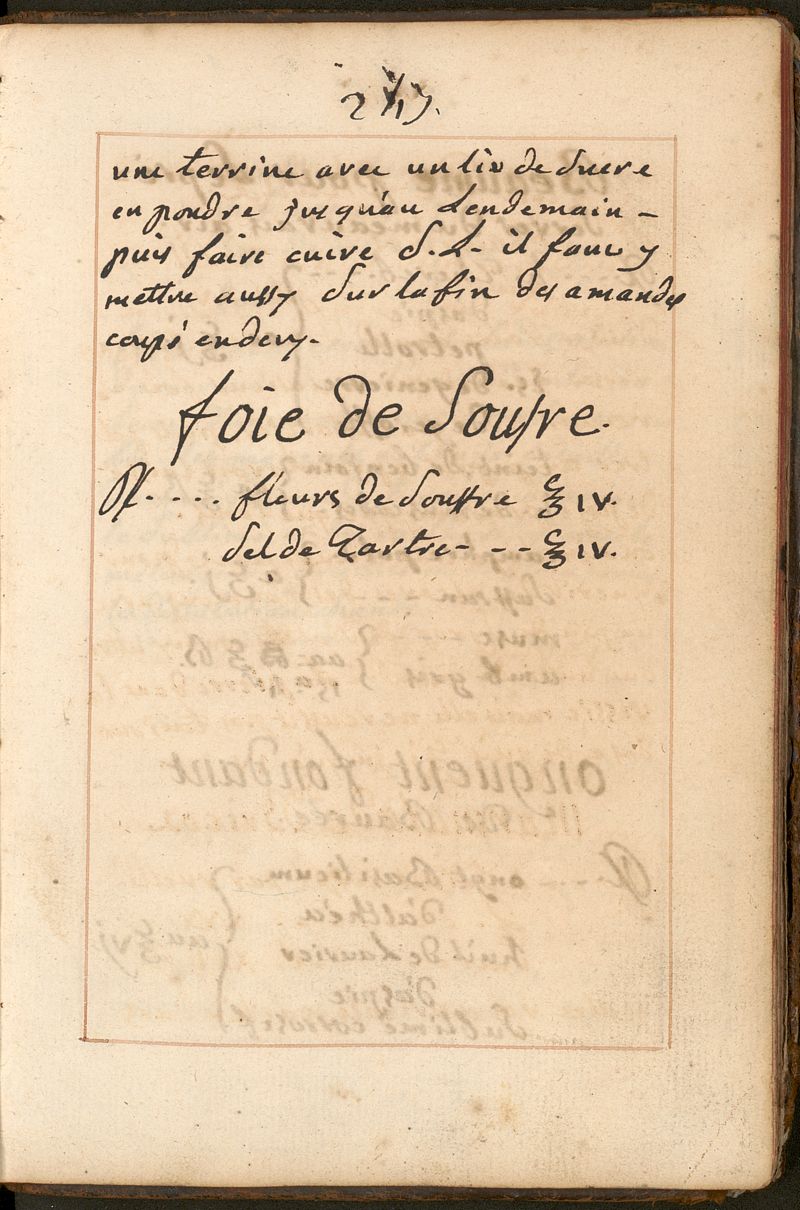 une terrine avec un liv de sucre
en poudre jusqu'au Lendemain -
puis faire cuire S. L - il faut y
mettre aussy sur la fin des amandes
coupé en deux.
foie de Soufre.
℞ . . . . fleurs de Souffre ℥ IV.
Sel de Tartre - - - ℥ IV.